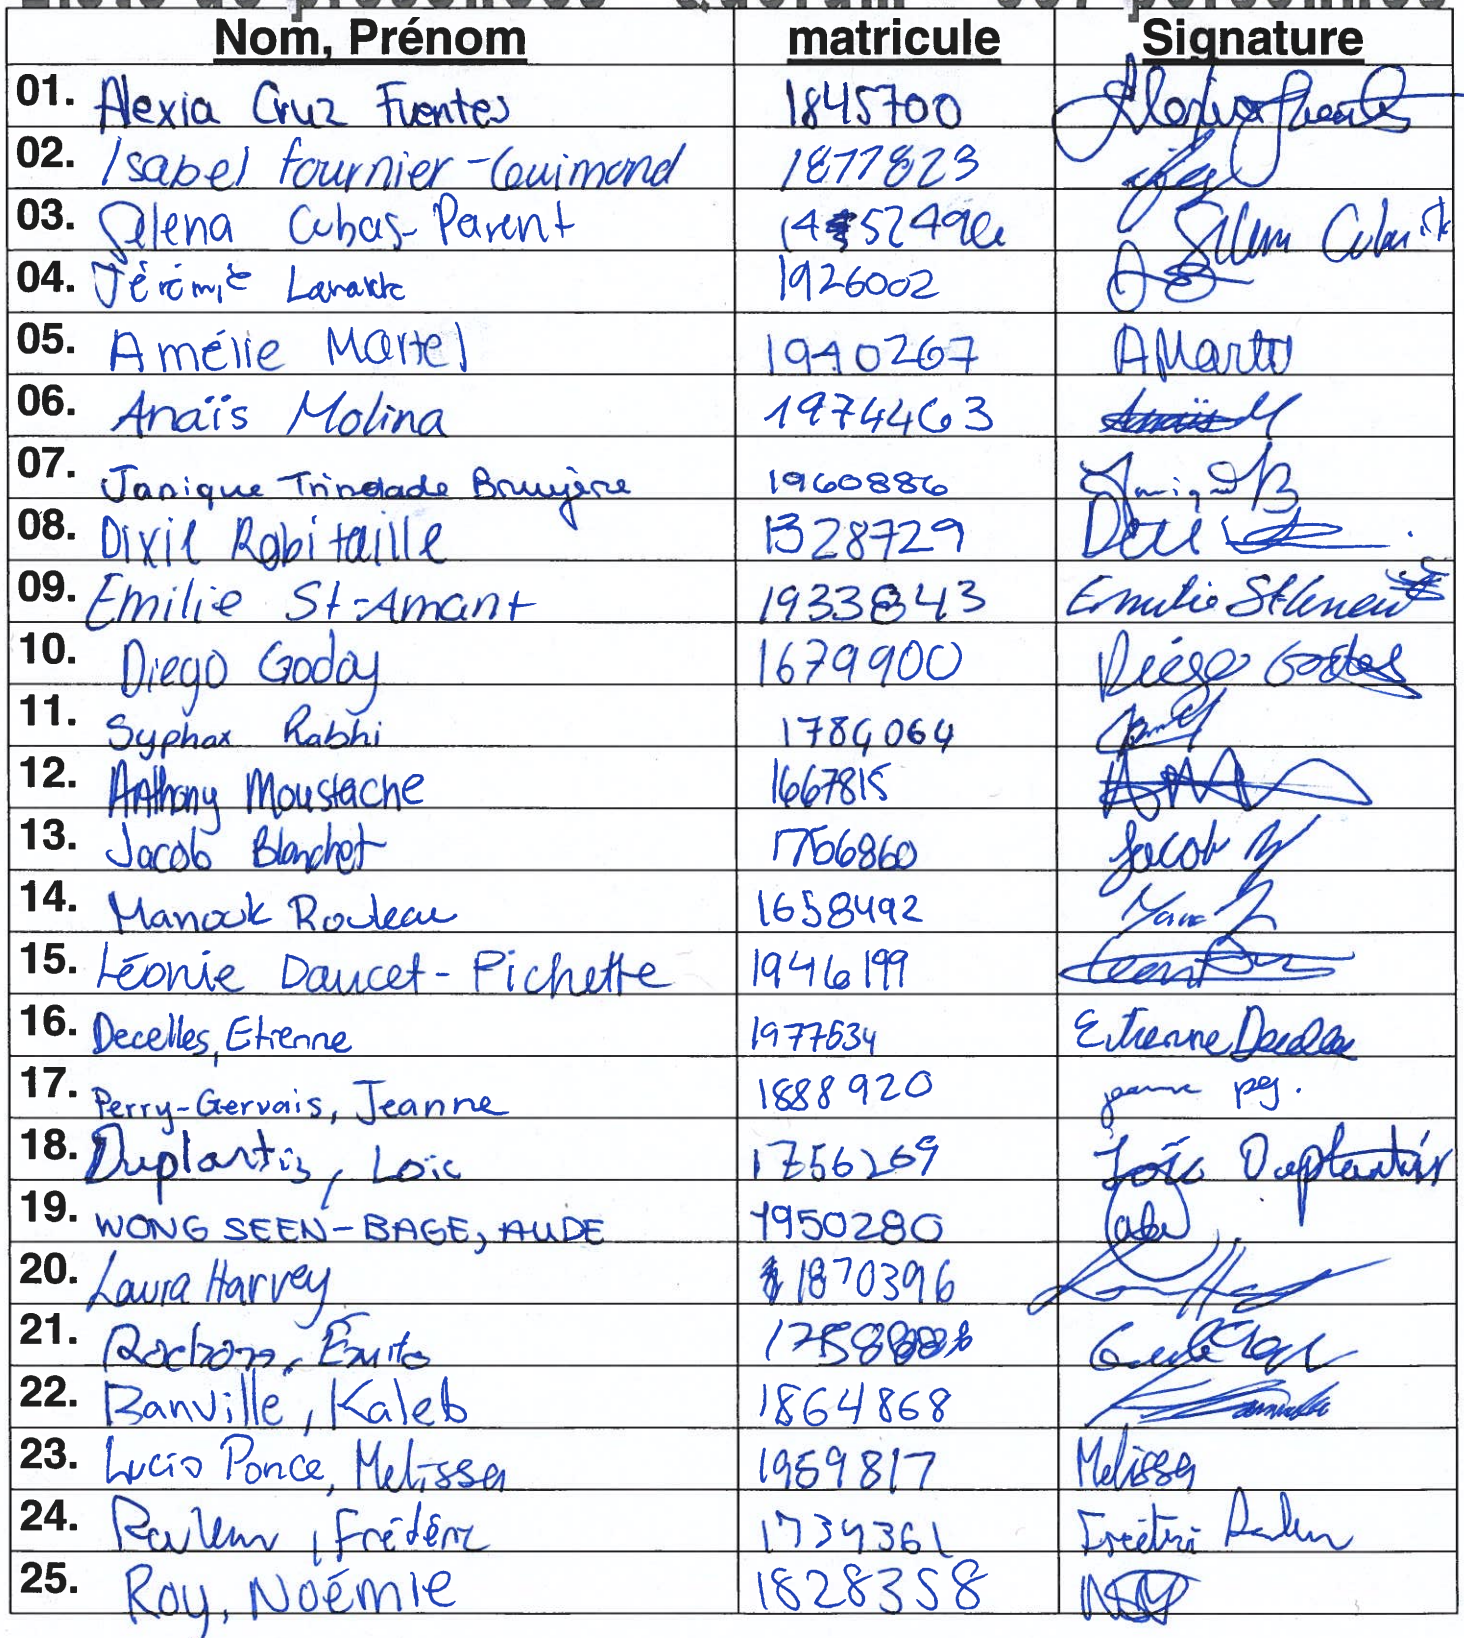 Liste de présences - Quorum - 357 personnes
Nom, Prénom matricule Signature
01. Alexia Cruz Fuentes 1845700
02. Isabel Fournier-Guimond 1877823
03. Selena Cubas-Parent
04. Jérémie 1926002
05. Amélie Martel 1940267 AMartel
06. Anaïs Molina 1974463 Anaïs M
07. Janique Trindade Bruyère 1960886
08. Dixil Robitaille 1328729
09. Emilie St-Amant 1933843 Emilie St-Amant
10. Diego Godoy 1679900 Diego Godoy
11. Syphax Rabhi
12. Anthony Moustache 1667815
13. Jacob Blanchet 1766860 Jacob
14. Manouk Rouleau 1658492
15. Léonie Daucet-Pichette 1946199
16. Decelles, Etienne 1977634 Etienne Decelles
17. Perry-Gervais, Jeanne 1888920 jeanne pg.
18. Duplantis, Loïc 1756269 Loïc Duplantis
19. WONG SEEN-BAGE, AUDE 1950280
20. Laura Harvey 1870396
21. Rochon,
22. Banville, Kaleb 1864868
23. Lucio Ponce, Melissa 1959817 Melissa
24. Frédéric 1739361
25. Roy, Noémie 1828358